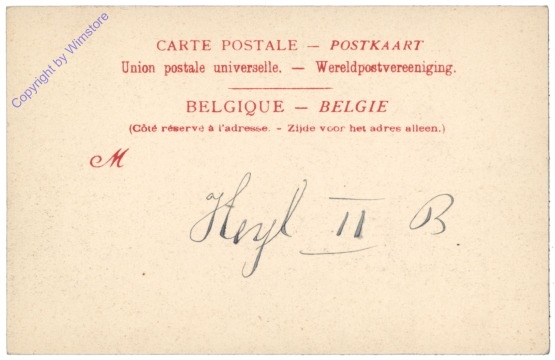 Copyright by Wimstore
CARTE POSTALE — POSTKAART
Union postale universelle. — Wereldpostvereeniging.
BELGIQUE — BELGIE
(Côté réservé à l'adresse. - Zijde voor het adres alleen.)
M
Heyl II B